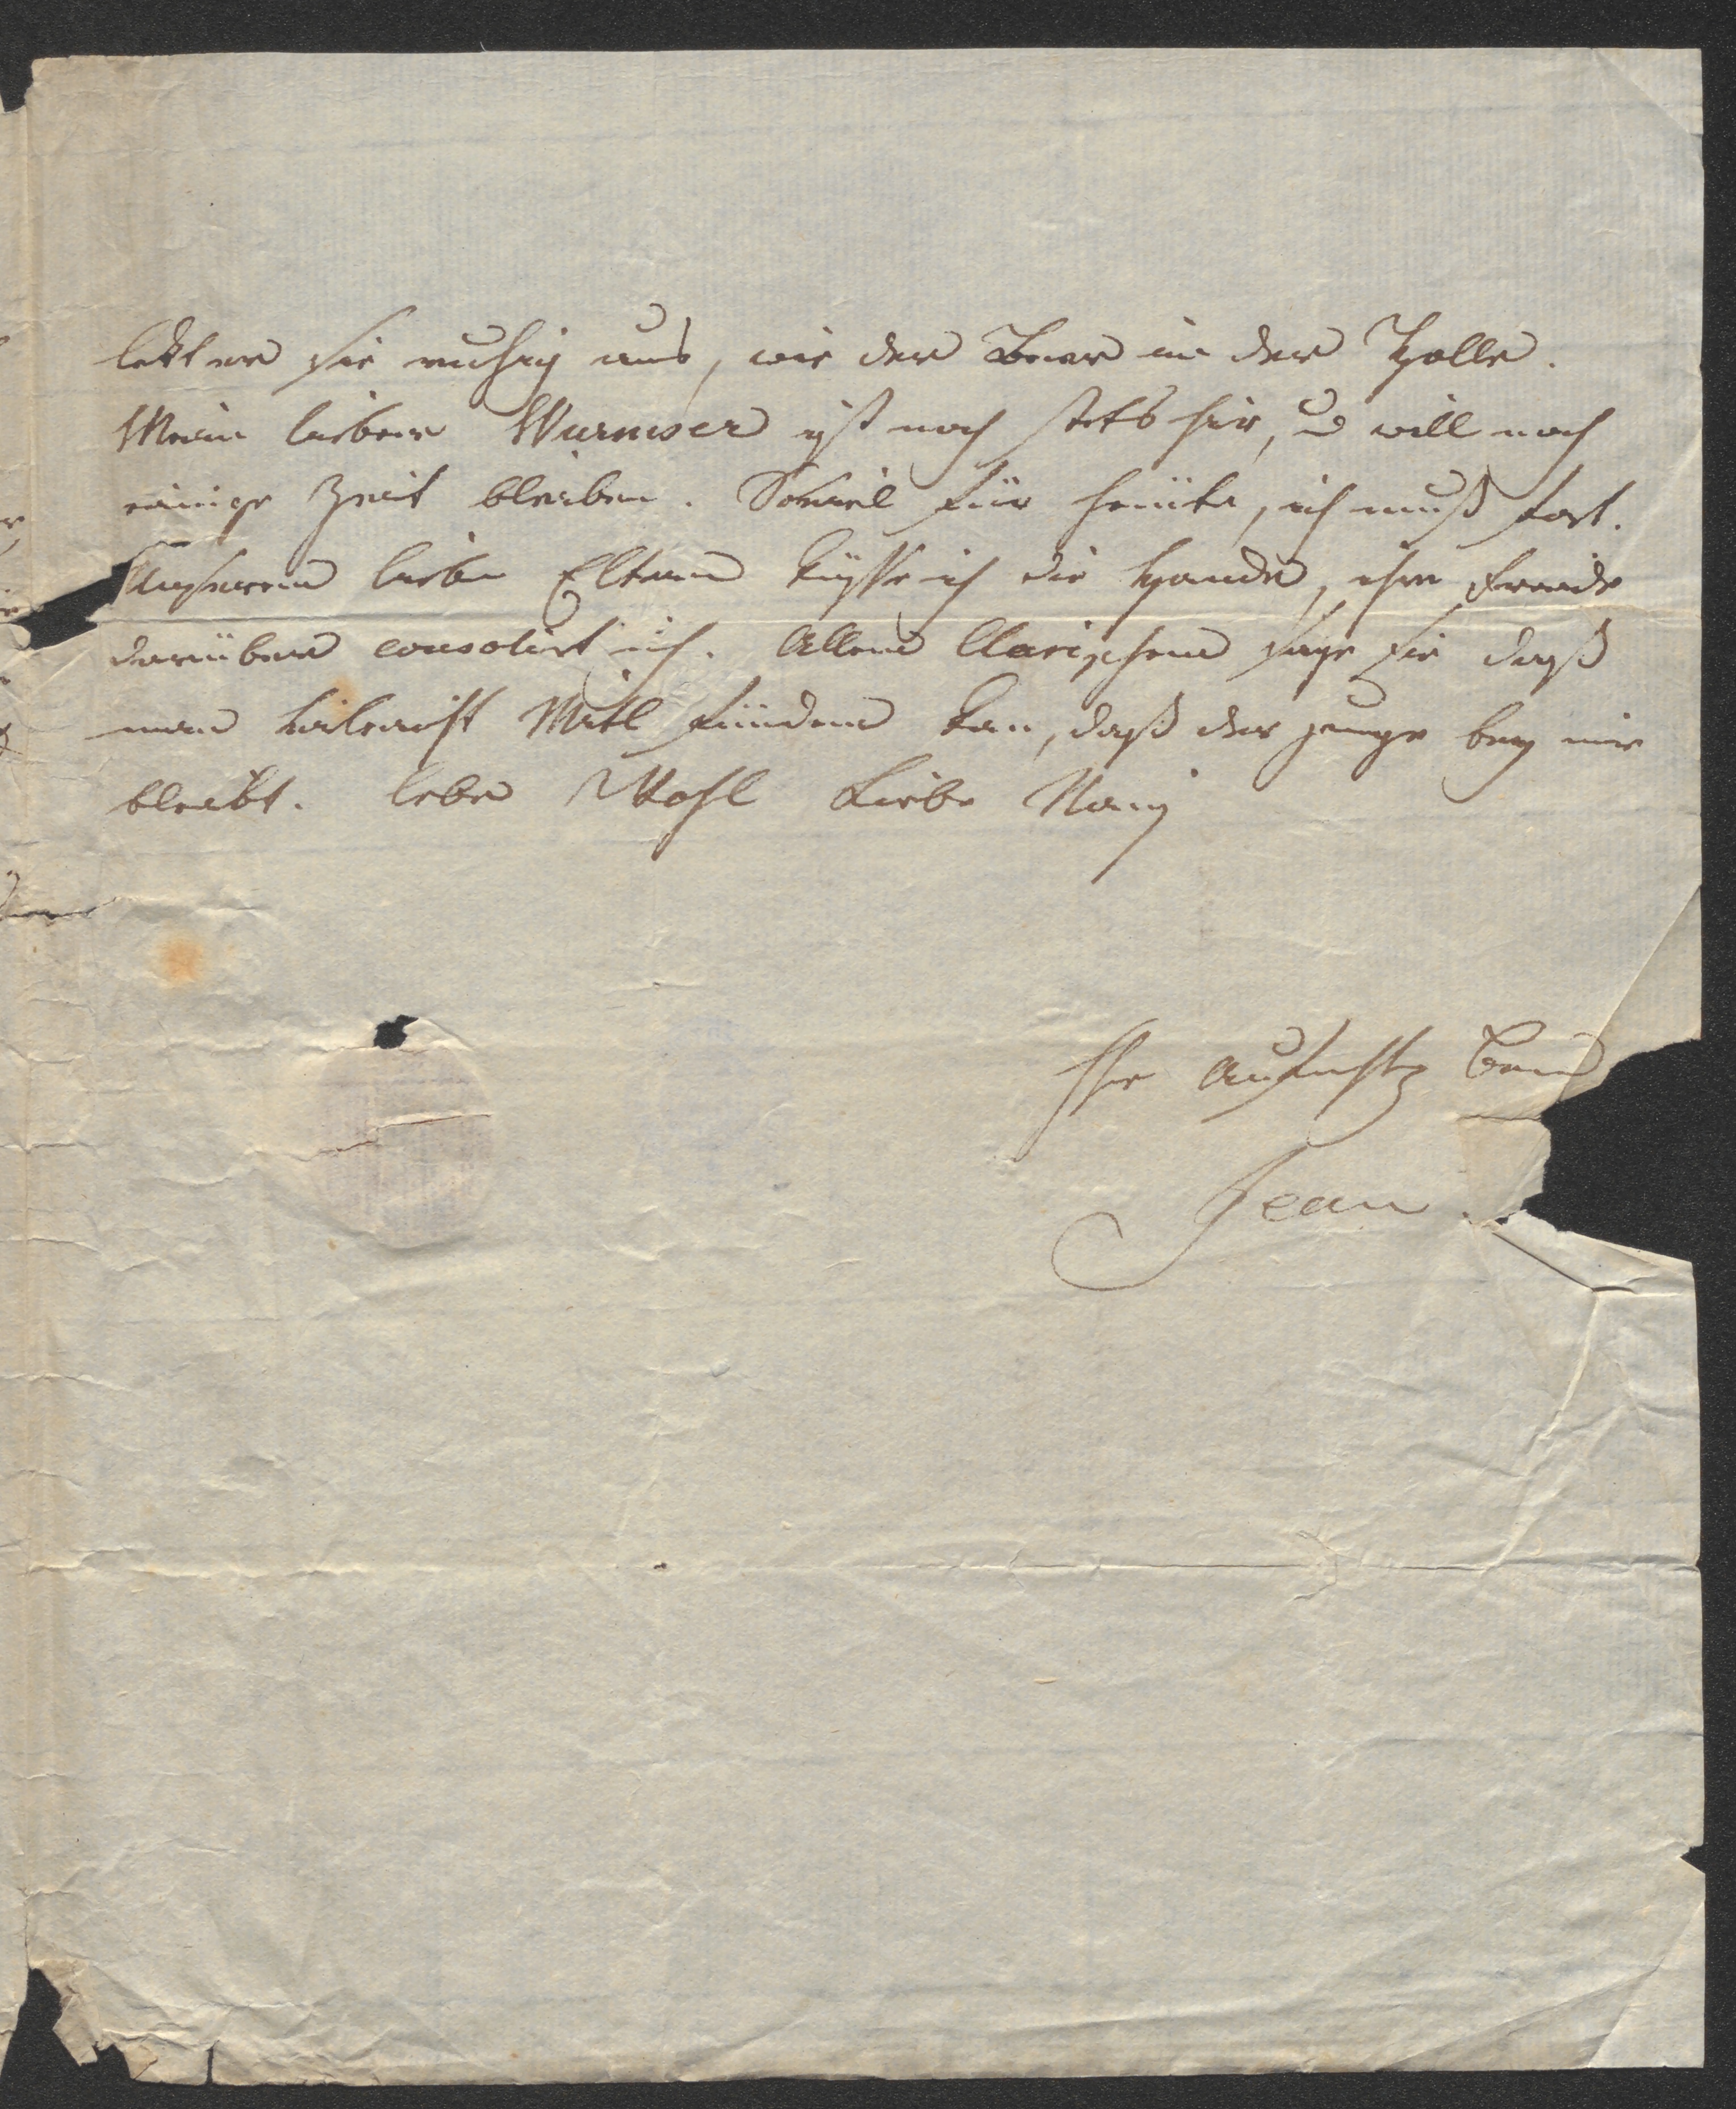 lekt er sie ruhig aus, wie der Bear in der Hölle.
Mein lieber Wurmser ist noch stets hier, u will noch
einige Zeit bleiben. Soviel für heüte, ich muß fort.
Unsseren lieben Eltern küsse ich die Hände, ihre Freude
darüber consolirt mich. Allen Clarischen sage sie daß
man vileicht Mitl fünden kan, daß der junge bey mir
bleibt. lebe Wohl Liebe Nani
Ihr aufrichtig
Jean